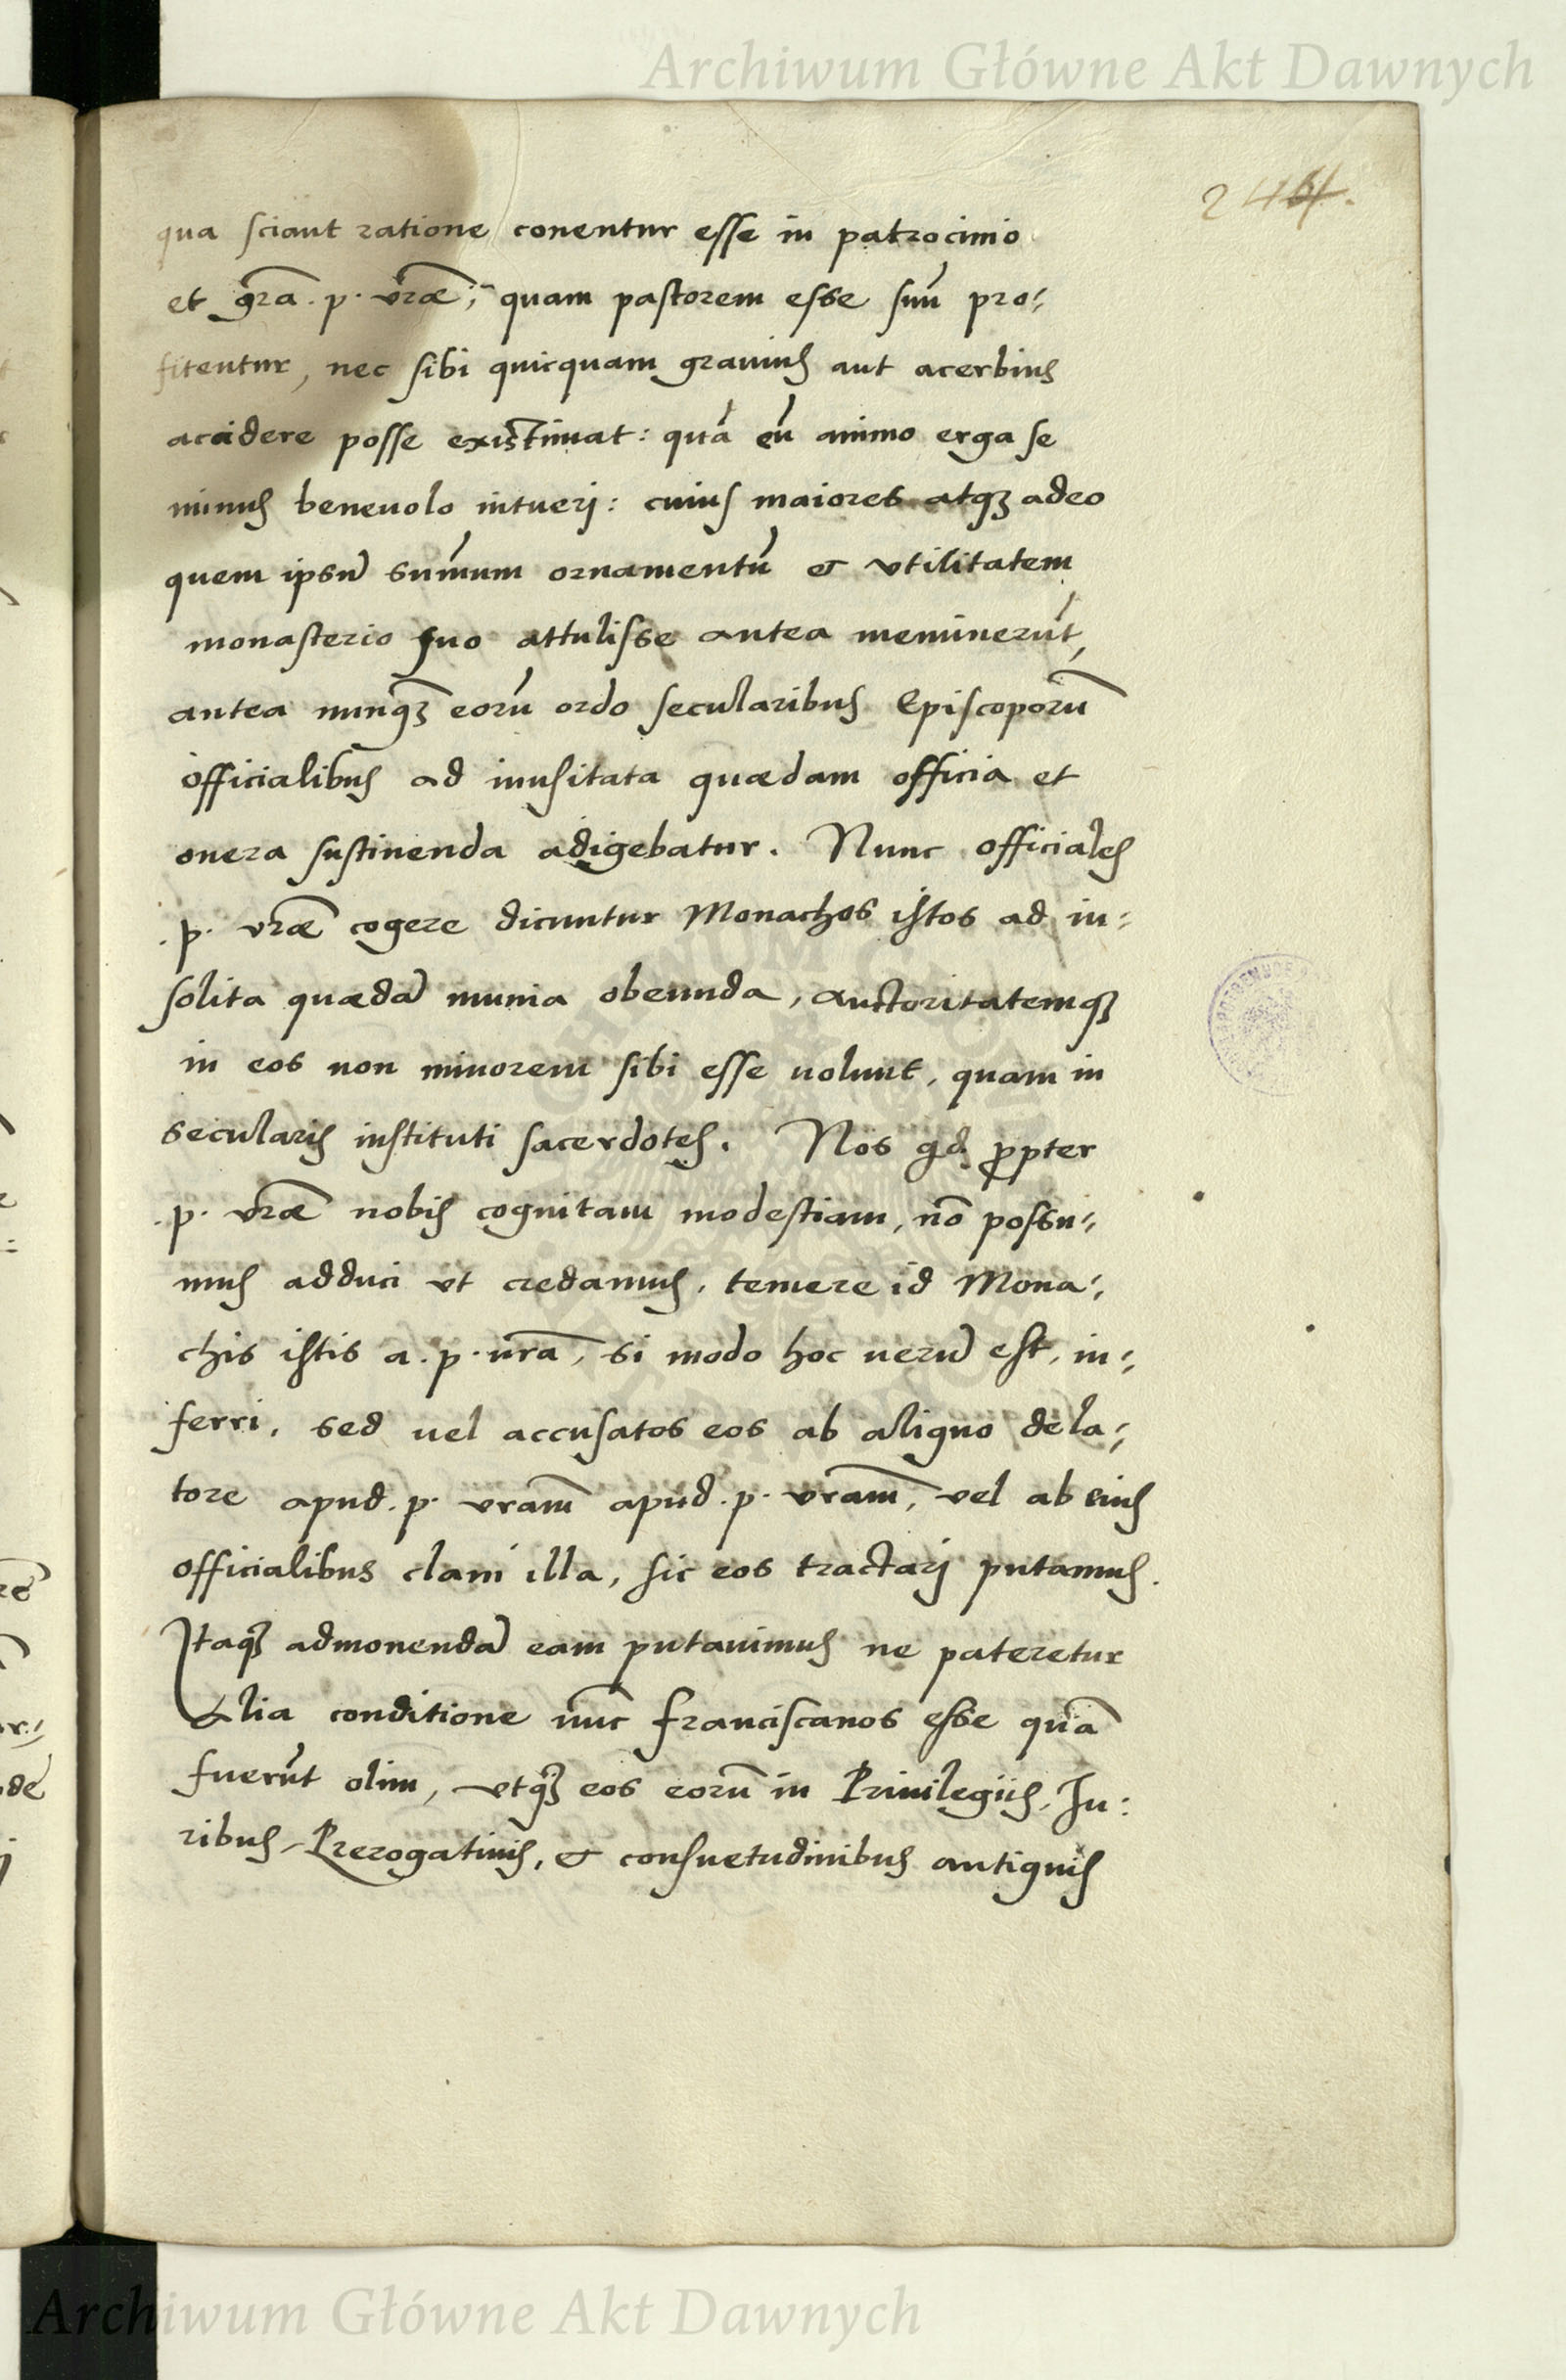 Archiwum Główne Akt Dawnych
244.
qua sciant ratione conentur esse in patrocinio
et gr̃a . p. vr̃æ; quam pastorem esse suũ pro-
fitentur, nec sibi quicquam grauius aut acerbius
accidere posse existimat: quã eũ animo erga se
minus beneuolo intuerj: cuius maiores atq3 adeo
quem ipsũ sum̃um ornamentũ et vtilitatem
monasterio suo attulisse antea meminerũt,
antea nunq3 eorũ ordo secularibus Episcoporũ
officialibus ad inusitata quædam officia et
onera sustinenda adigebatur. Nunc officiales
.p. vr̃æ cogere dicuntur Monachos istos ad in-
solita quædã munia obeunda, auctoritatemq3
in eos non minorem sibi esse uolunt, quam in
secularis instituti sacerdotes. Nos qd. ꝓpter
.p. vr̃æ nobis cognitam modestiam, nõ possu-
mus adduci vt credamus, temere id Mona-
chis istis a . p. ur̃a, si modo hoc uerũ est, in-
ferri, sed uel accusatos eos ab aliquo dela-
tore apud . p. vram̃ apud . p. vram̃, vel ab eius
officialibus clam illa, sic eos tractarj putamus.
Itaq3 admonendã eam putauimus ne pateretur
alia conditione nũc Franciscanos esse quã
fuerũt olim, vtq3 eos eorũ in Priuilegiis, Iu-
ribus, Prerogatiuis, et consuetudinibus antiquis
Archiwum Główne Akt Dawnych